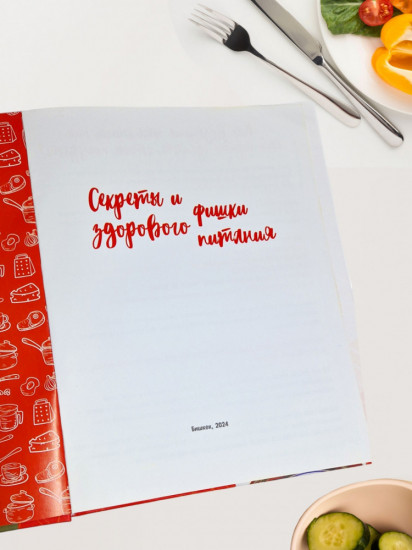 Секреты и фишки
здорового питания
Бишкек, 2024